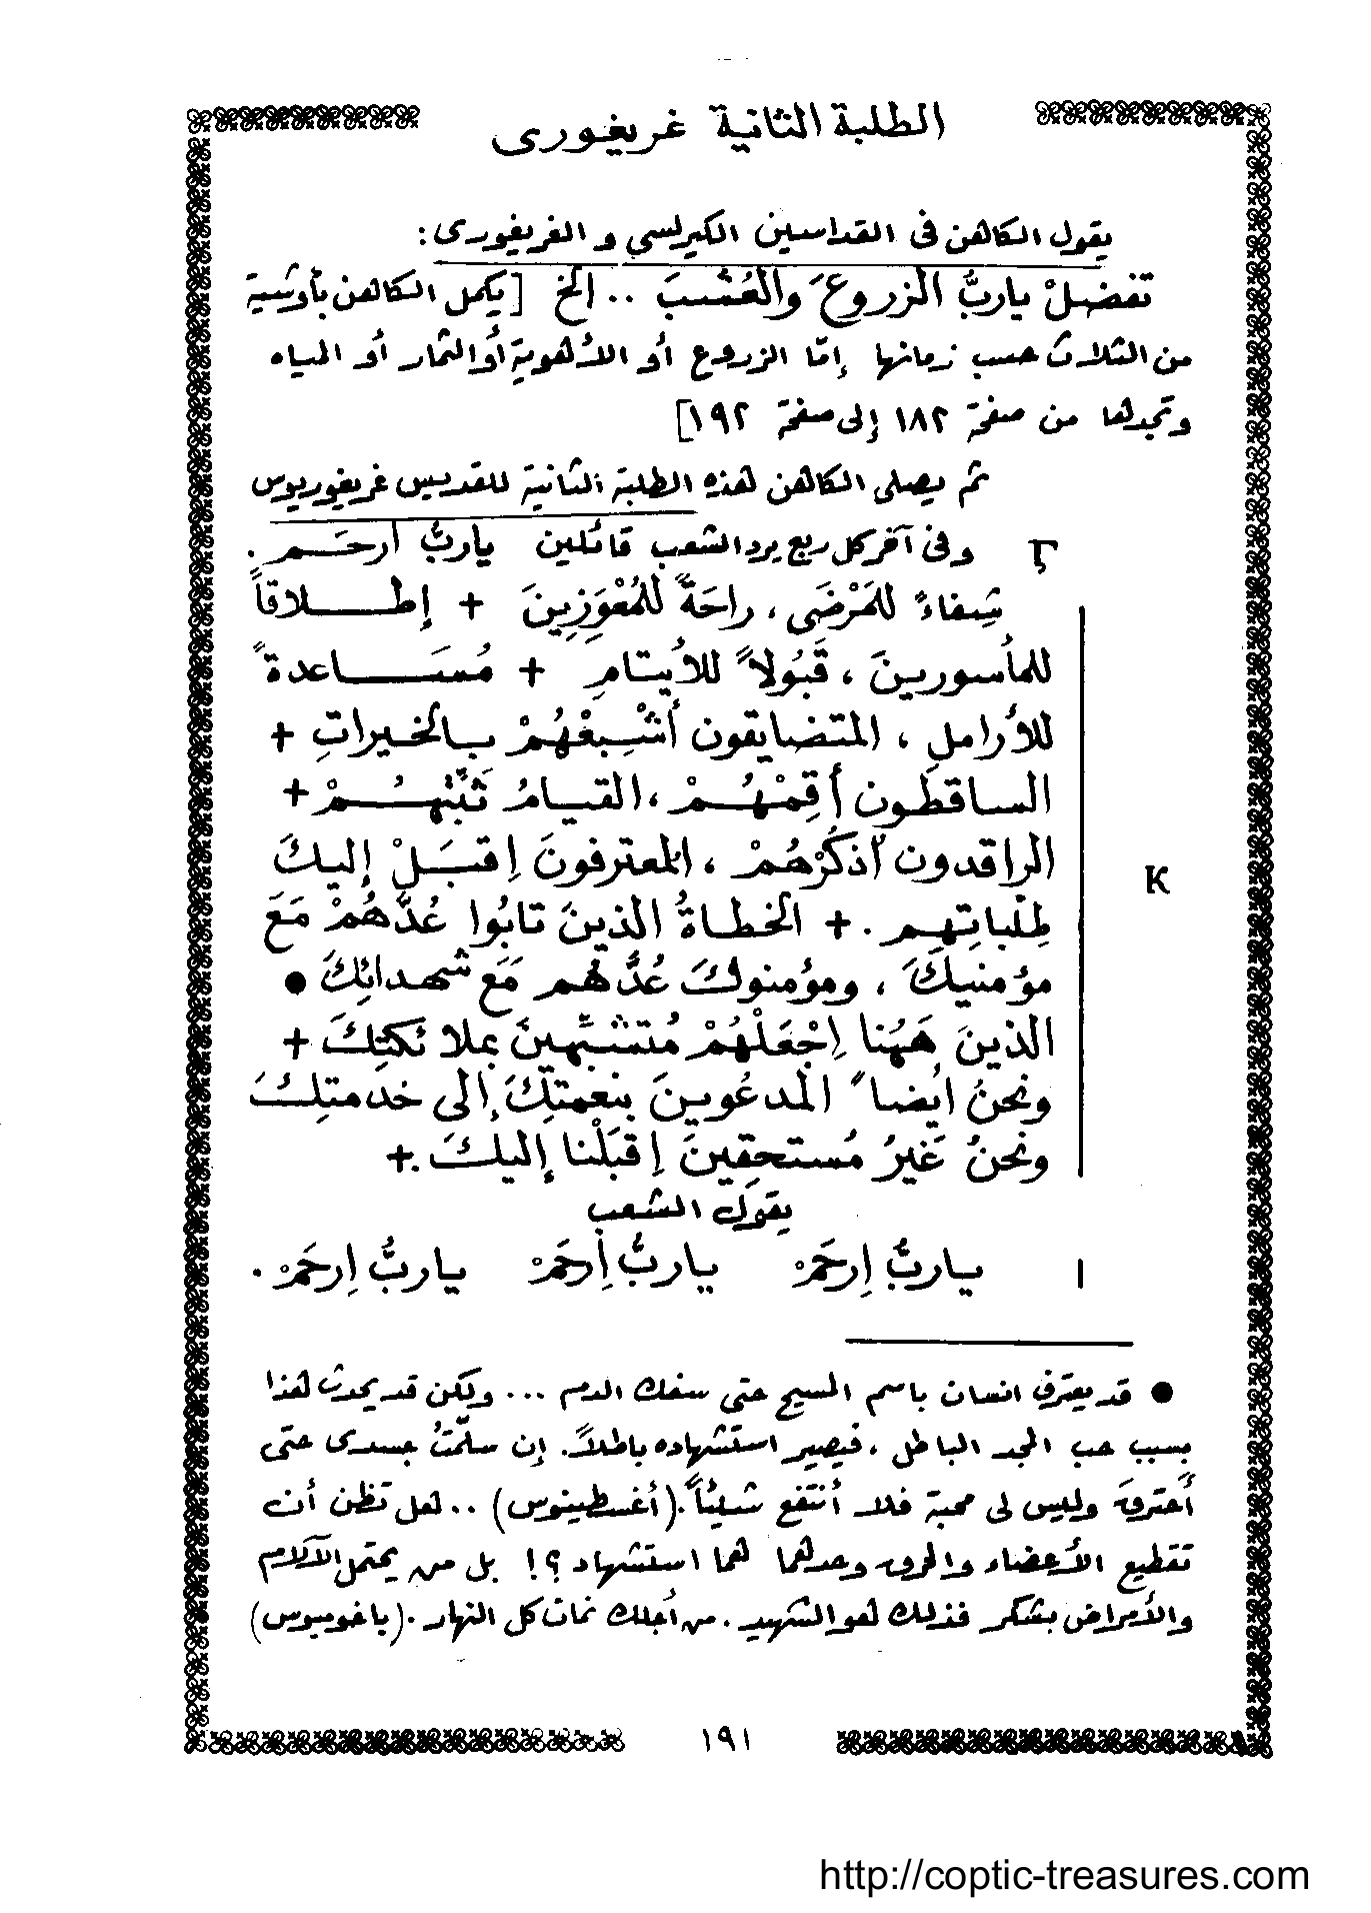 الطلبة الثانية غريغورى
يقول الكاهن فى القداسين الكيرلسي و الغريغورى :
تفضلْ ياربُّ الزروعَ والعُشبَ .. الخ [يكمل الكاهن بأوشية
من الثلاث حسب زمانها إمّا الزروع أو الأهوية أوالثمار أو المياه
وتجدها من صفحة ١٨٢ إلى صفحة ١٩٢]
ثم يصلى الكاهن هذه الطلبة الثانية للقديس غريغوريوس
وفى آخر كل ربع يرد الشعب قائلين ياربُّ ارحم .
شِفاءً للمَرْضَى ، راحَةً للمُعْوَزِينَ + إطلاقاً
للمأسورينَ ، قَبُولاً للأيتامِ + مُسَاعدةً
للأراملِ ، المتضايقون أشْبِعْهُمْ بالخيراتِ +
الساقطون أقِمْهُمْ ، القيامُ ثَبِّتْهُمْ +
الراقدون أذكُرْهُمْ ، المعترفونَ اِقبَلْ إليكَ
طِلْباتِهِم . + الخطاةُ الذينَ تابُوا عُدَّهُمْ مَعَ
مؤمنيكَ ، ومؤمنوكَ عُدَّهُم مَعَ شهدائِكَ ●
الذينَ هَهُنا اِجْعَلْهُمْ مُتشبِّهينَ بملائكتِكَ +
ونحنُ ايضاً المدعُوينَ بنعمتِكَ إلى خدمتِكَ
ونحنُ غَيرُ مُستحقِينَ اِقبَلْنا إليكَ . +
K
يقول الشعب
ياربُّ اِرحَمْ ياربُّ اِرحَمْ ياربُّ اِرحَمْ .
● قد يعترف انسان باسم المسيح حتى سفك الدم ... ولكن قد يحدث هذا
بسبب حب المجد الباطل ، فيصير استشهاده باطلاً . إن سلّمتُ جسدى حتى
أحترقَ وليس لى محبة فلا أنتفع شيئاً . (أغسطينوس) .. لعل تظن أن
تقطيع الأعضاء والحرق وحدهما هما استشهاد ؟! بل من يحتمل الآلام
والأمراض بشكر فذلك هو الشهيد . من أجلك نمات كل النهار . (باخوميوس)
١٩١
http://coptic-treasures.com